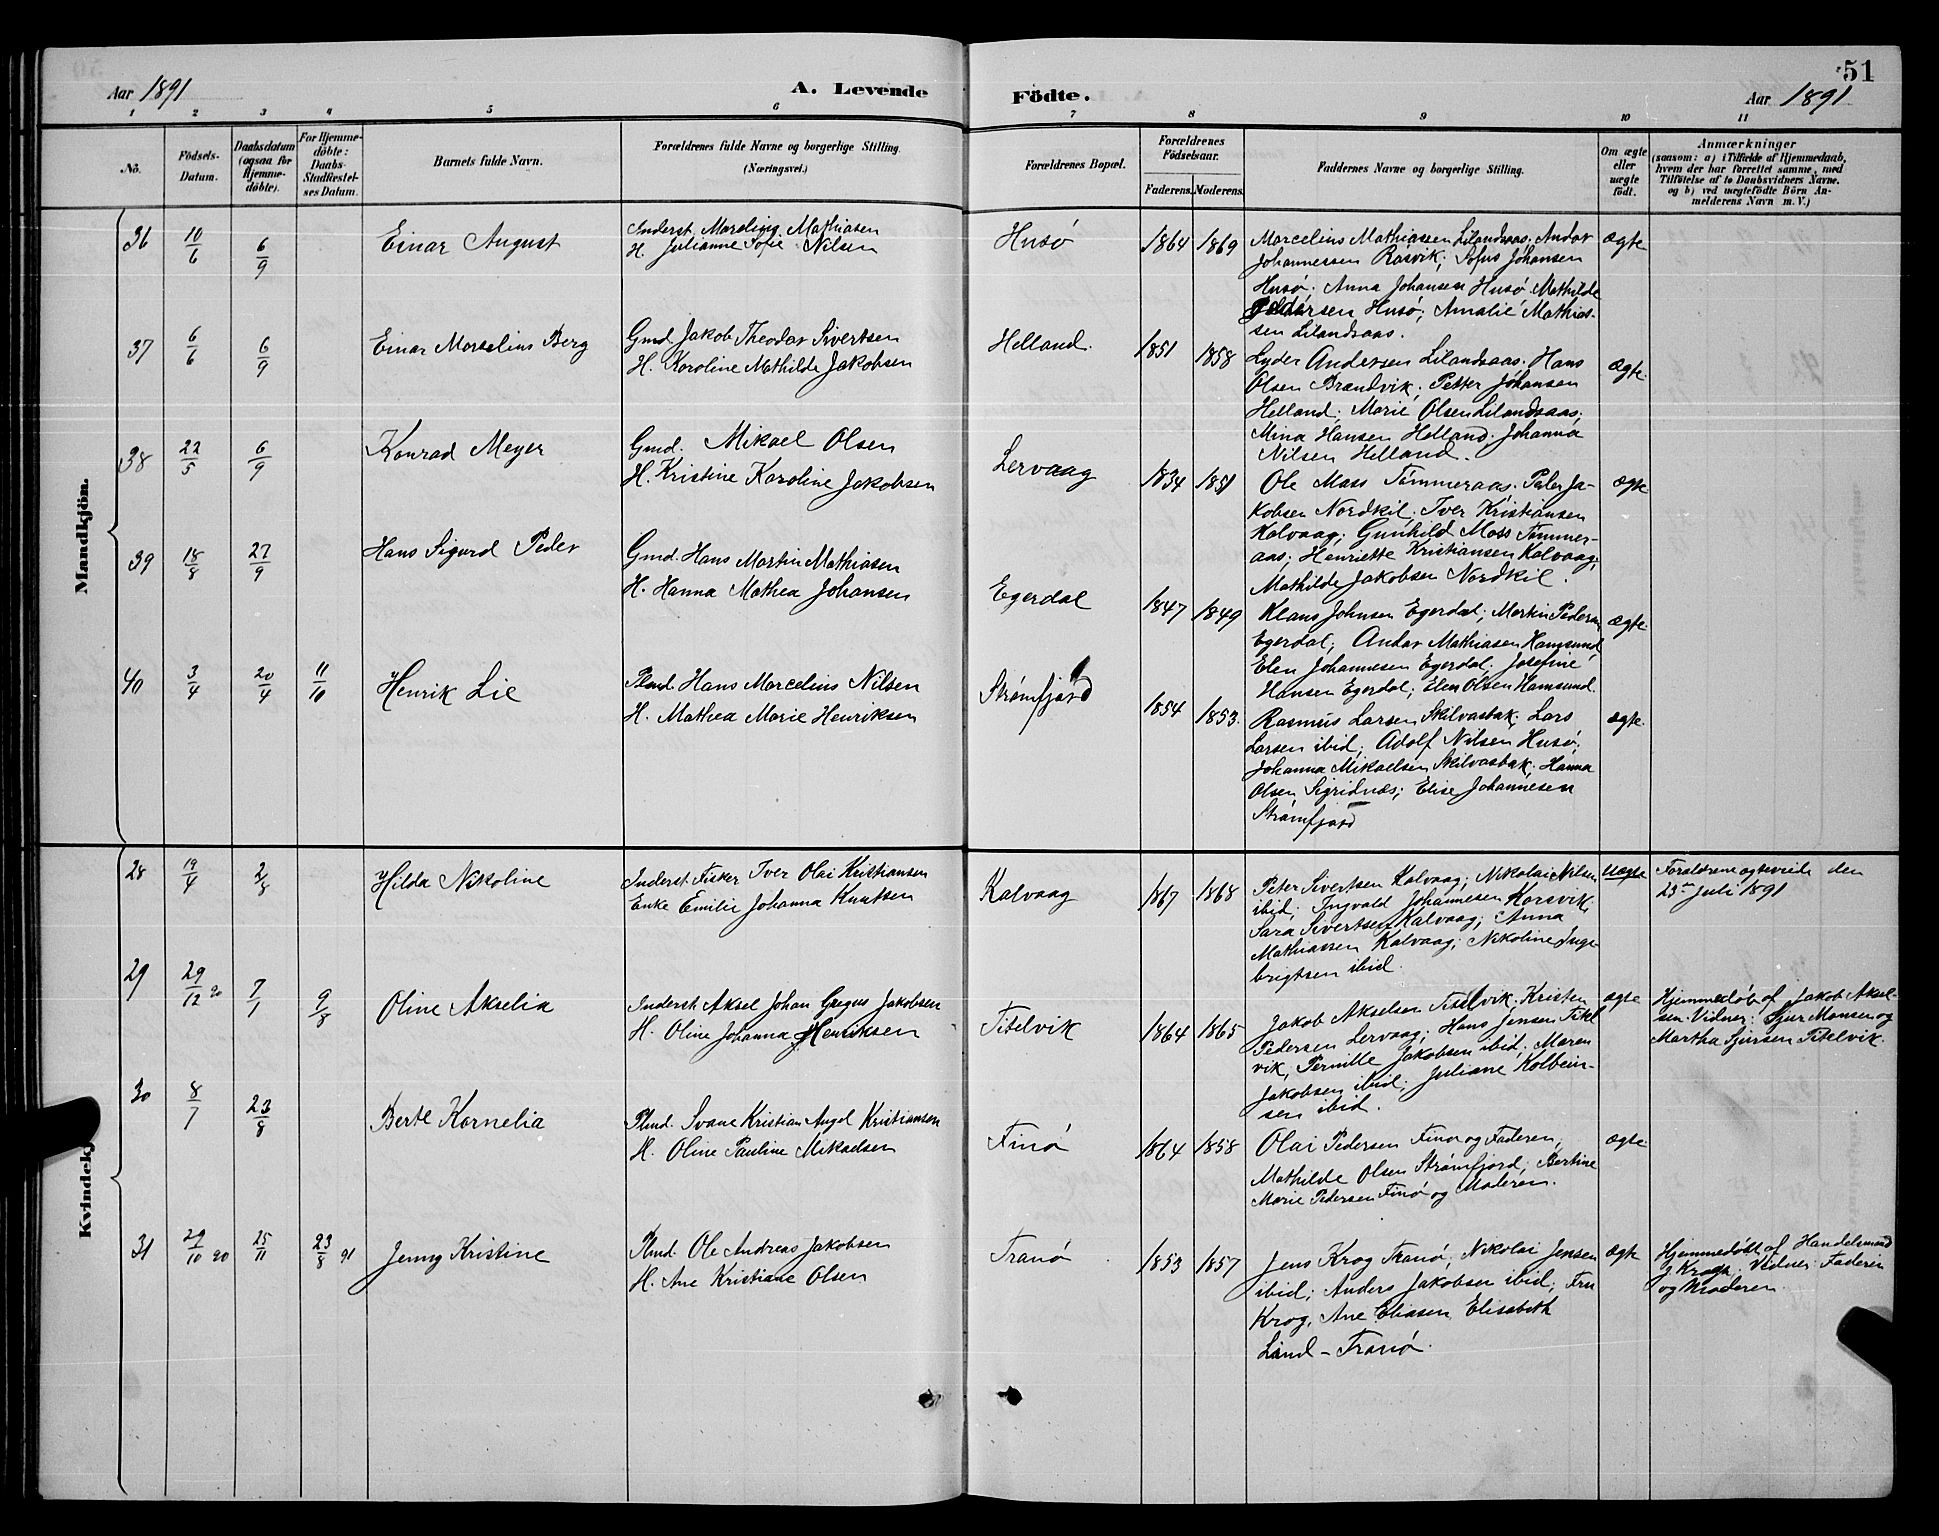 51
Aar 1891
A. Levende
Födte.
Aar 1891
1 2 3 4 5 6 7 8 9 10 11
No.
Födsels-
Datum.
Daabsdatum
(ogsaa for
Hjemme-
döbte).
For Hjemme-
döbte:
Daabs-
Stadfæstel-
ses Datum.
Barnets fulde Navn.
Forældrenes fulde Navne og borgerlige Stilling.
(Næringsvei.)
Forældrenes Bopæl.
Forældrenes
Födselsaar.
Faderens. Moderens.
Faddernes Navne og borgerlige Stilling.
Om ægte
eller
uægte
födt.
Anmærkninger
(saasom: a) i Tilfælde af Hjemmedaab,
hvem der har forrettet samme, med
Tilföielse af to Daabsvidners Navne,
og b) ved uægtefödte Börn An-
melderens Navn m. V.)
Mandkjön.
36 10/6 6/9 Einar August
Inderst. Marelius Mathiasen
H. Julianne Sofie Nilsen
Husø 1864 1869
Marcelius Mathiassen Lilandsaas; Andor
Johannessen Røsvik; Sofus Johansen
Husø; Anna Johansen Husø; Mathilde
Pedersen Husø; Amalie Mathias-
sen Lilandsaas.
ægte
37 6/6 6/9 Einar Marselius Berg
Gmd. Jakob Theodor Sivertsen
H. Karoline Mathilde Jakobsen
Helland. 1851 1858
Lyder Andersen Lilandsaas; Hans
Olsen Brandvik; Petter Johansen
Helland; Marie Olsen Lilandsaas;
Mina Hansen Helland; Johanna
Nilsen Helland.
ægte.
38 22/5 6/9 Konrad Meyer
Gmd. Mikael Olsen
H. Kristine Karoline Jakobsen
Lervaag 1834 1851
Ole Mass Tømmeraas; Peter Ja-
kobsen Nordkil; Iver Kristiansen
Kalvaag; Gunhild Moss Tømmer-
aas; Henriette Kristiansen Kalvaag;
Mathilde Jakobsen Nordkil.
ægte
39 18/8 27/9 Hans Sigurd Peder
Gmd. Hans Martin Mathiasen
H. Hanna Mathea Johansen
Egerdal 1847 1849
Klaus Johnsen Egerdal; Martin Pedersen
Egerdal; Andor Mathiasen Hamsund
Elen Johannesen Egerdal; Josefine
Hansen Egerdal; Elen Olsen Hamsund.
ægte.
40 3/4 20/4 11/10 Henrik Lie
Plmd. Hans Marcelius Nilsen
H. Mathea Marie Henriksen
Strømfjord 1854 1853.
Rasmus Larsen Skilvasbak; Lars
Larsen ibid; Adolf Nilsen Husø;
Johanna Mikaelsen Skilvasbak; Hanna
Olsen Sigridnæs; Elise Johannesen
Strømfjord
ægte.
Kvindekj
28 19/4 2/8 Hilda Nikoline
Inderst. Fisker Iver Olai Kristiansen
Enke Emilie Johanna Knutsen
Kalvaag 1867 1868
Peter Sivertsen Kalvaag; Nikolai Nilsen
ibid; Ingvald Johannesen Korsvik,
Sara Sivertsen Kalvaag; Anna
Mathiassen Kalvaag; Nikoline Inge-
brigtsen ibid.
uægte
Forældrene ægteviede den
23de Juli 1891
29 29/12 90 7/1 9/8 Oline Akselia
Inderst. Aksel Johan Gregus Jakobsen
H. Oline Johanna Henriksen
Titelvik 1864 1865
Jakob Akselsen Titelvik; Kristen
Pedersen Lervaag; Hans Jensen Titel
vik; Pernille Jakobsen ibid; Maren
Jakobsen ibid; Juliane Kolbein-
sen ibid.
ægte
Hjemmedøbt af Jakob Aksel-
sen. Vidner: Sjur Monsen og
Martha Sjursen Titelvik.
30 8/7 23/8 Berte Kornelia
Plmd. Svane Kristian Angel Kristiansen
H. Oline Pauline Mikaelsen
Finø 1864 1858
Olai Pedersen Finø og Faderen;
Mathilde Olsen Strømfjord; Bertine
Marie Pedersen Finø og Moderen.
ægte.
31 29/10 90 25/11 23/8 91 Jenny Kristine
Plmd. Ole Andreas Jakobsen
H. Ane Kristiane Olsen
Tranø 1853 1857
Jens Krog Tranø; Nikolai Jensen
ibid; Anders Jakobsen ibid; Fru
Krog, Ane Eliasen, Elisabeth
Lind - Tranø.
ægte
Hjemmedøbt af Handelsmand
J Krogh; Vidner: Faderen
og Moderen.